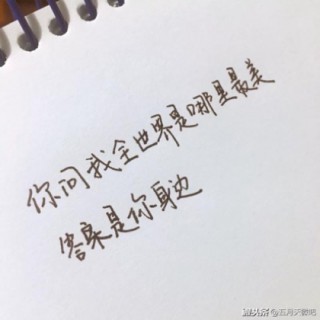 你问我全世界是哪里最美
答案是你身边
头条号@五月天歌吧